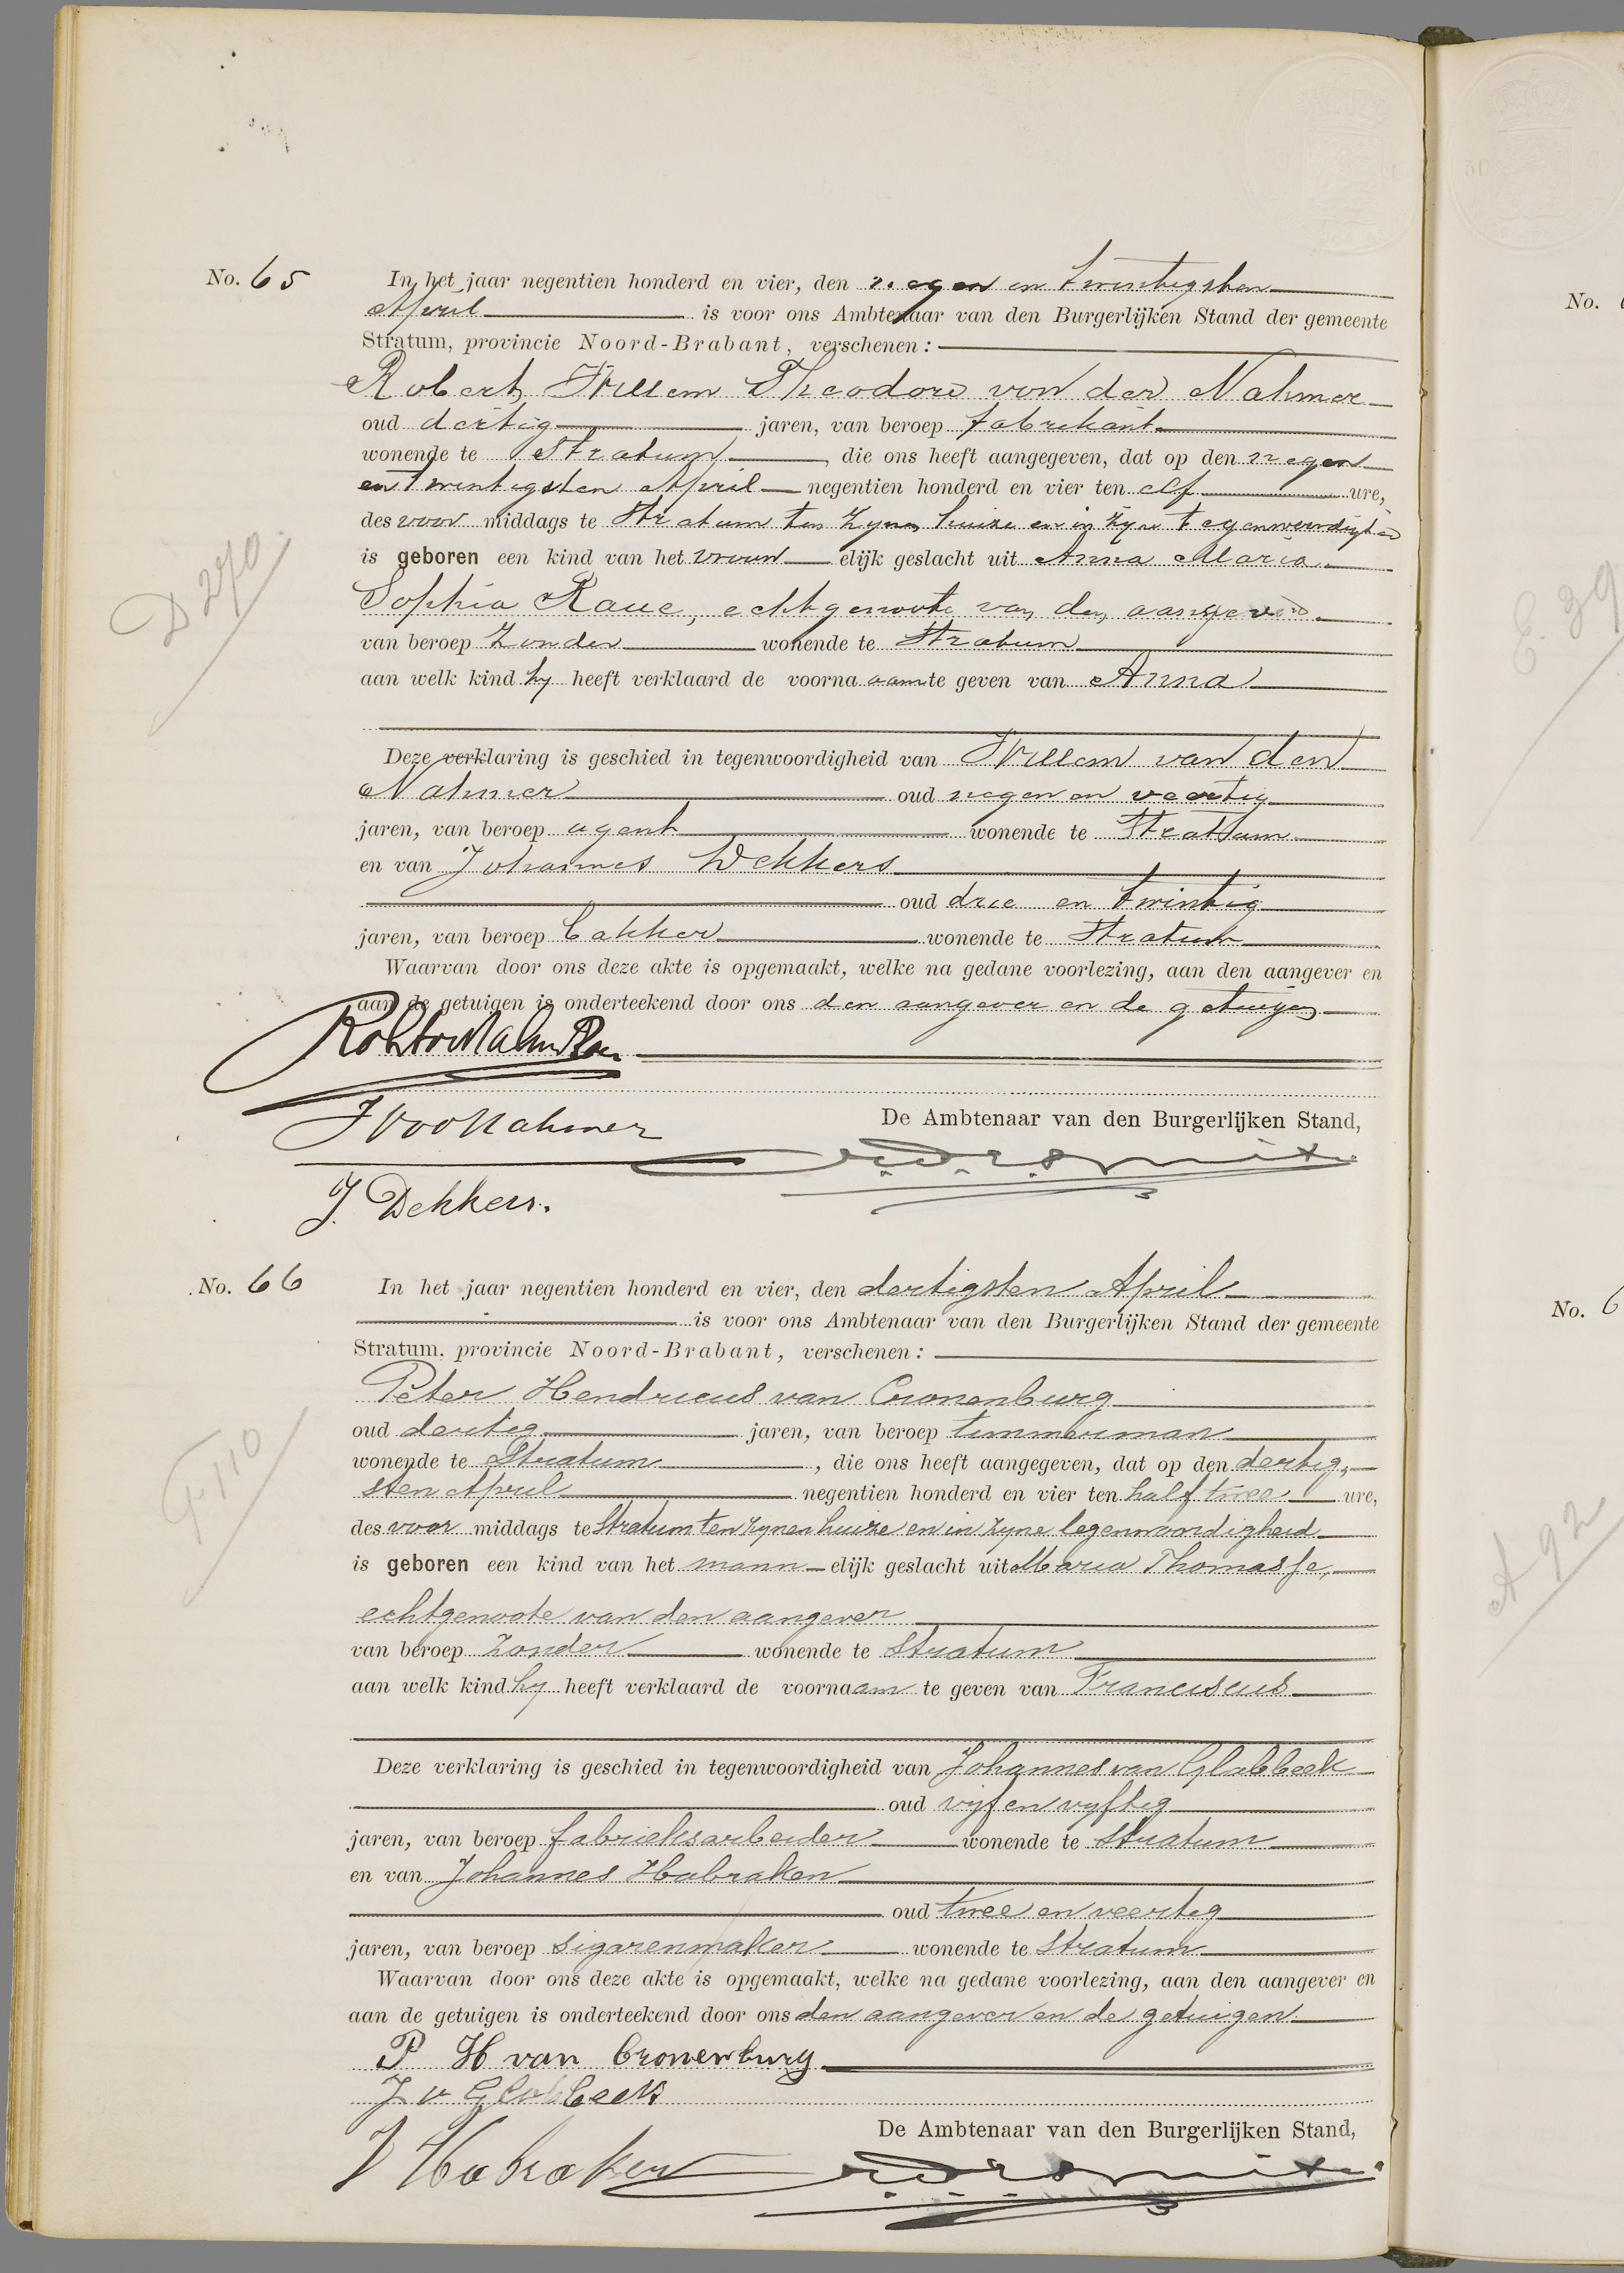 No. 65
In het jaar negentien honderd en vier, den negen en twintigsten
April is voor ons Ambtenaar van den Burgerlijken Stand der gemeente
Stratum, provincie Noord-Brabant, verschenen:
Robert Willem Theodore von der Nahmer
oud dertig jaren, van beroep fabrikant
wonende te Stratum, die ons heeft aangegeven, dat op den negen
en twintigsten April negentien honderd en vier ten elf ure,
des voor middags te Stratum ten zynen huize en in zyne tegenwoordigheid
is geboren een kind van het vrouw elijk geslacht uit Anna Maria
Sophia Raue, echtgenoote van den aangever
van beroep zonder wonende te Stratum
aan welk kind hy heeft verklaard de voorna aam te geven van Anna
D 270
Deze verklaring is geschied in tegenwoordigheid van Willem van den
Nahmer oud negen en veertig
jaren, van beroep agent wonende te Stratum
en van Johannes Dekkers
oud drie en twintig
jaren, van beroep bakker wonende te Stratum
Waarvan door ons deze akte is opgemaakt, welke na gedane voorlezing, aan den aangever en
aan de getuigen is onderteekend door ons den aangever en de getuigen
Nahmer
De Ambtenaar van den Burgerlijken Stand,
J. Dekkers.
No. 66
In het jaar negentien honderd en vier, den dertigsten April
is voor ons Ambtenaar van den Burgerlijken Stand der gemeente
Stratum, provincie Noord-Brabant, verschenen:
Peter Hendricus van Cronenburg
oud dertig jaren, van beroep timmerman
wonende te Stratum, die ons heeft aangegeven, dat op den dertig-
sten April negentien honderd en vier ten half twee ure,
des voor middags te Stratum ten zynen huize en in zyne tegenwoordigheid
is geboren een kind van het mann elijk geslacht uit Maria Thomasse,
echtgenoote van den aangever
van beroep zonder wonende te Stratum
aan welk kind hy heeft verklaard de voornaam te geven van Franciscus
F 110
Deze verklaring is geschied in tegenwoordigheid van Johannes van Glabbeek
oud vijf en vyftig
jaren, van beroep fabrieksarbeider wonende te Stratum
en van Johannes Habraken
oud twee en veertig
jaren, van beroep sigarenmaker wonende te Stratum
Waarvan door ons deze akte is opgemaakt, welke na gedane voorlezing, aan den aangever en
aan de getuigen is onderteekend door ons den aangever en de getuigen
P H van Cronenburg
J v Glabbeek
De Ambtenaar van den Burgerlijken Stand,
J Habraken
No. 6
E. 39
No. 6
A 92